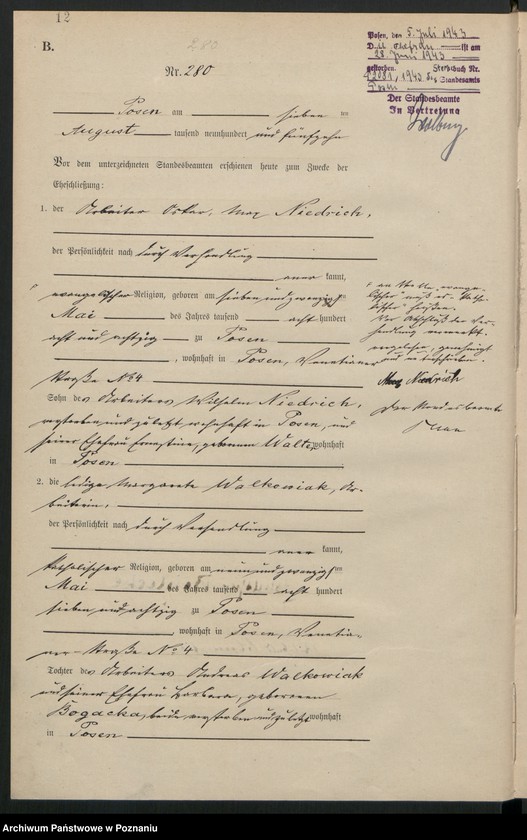 12
B.
280
Nr. 280
Posen, den 5. Juli 1943
ist am
28. Juni 1943
gestorben. Sterbebuch Nr.
1943 des Standesamts
Posen
Der Standesbeamte
In Vertretung
Posen am sieben ten
August tausend neunhundert und fünfzehn
Vor dem unterzeichneten Standesbeamten erschienen heute zum Zwecke der
Eheschließung:
1. der Arbeiter Oskar, Max Niedrich,
der Persönlichkeit nach durch Verhandlung
aner kannt,
evangelischer Religion, geboren am siebenundzwanzigsten
Mai des Jahres tausend acht hundert
acht und achtzig zu Posen
, wohnhaft in Posen, Venetianer
Straße No 4
Sohn des Arbeiters Wilhelm Niedrich,
verstorben und zuletzt wohnhaft in Posen, und
seiner Ehefrau Ernestine, geborenen Walter wohnhaft
in Posen
Max Niedrich
Der Standesbeamte
2. die ledige Margarete Walkowiak, Ar-
beiterin,
der Persönlichkeit nach durch Verhandlung
aner kannt,
katholischer Religion, geboren am neunundzwanzigsten
Mai des Jahres tausend acht hundert
sieben und achtzig zu Posen
, wohnhaft in Posen, Venetia-
ner-Straße No 4
Tochter des Arbeiters Andreas Walkowiak
und seiner Ehefrau Barbara, geborenen
Bogacka, beide verstorben und zuletzt wohnhaft
in Posen
Archiwum Państwowe w Poznaniu